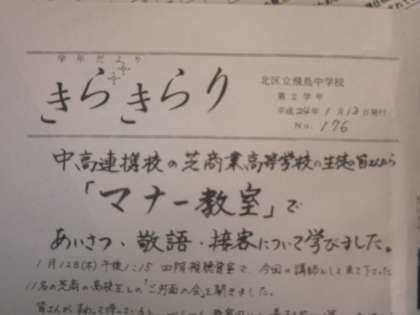 学年だより
きらきらり
北区立飛鳥中学校
第2学年
平成24年1月13日発行
No. 176
中高連携校の芝商業高等学校の生徒の皆さんから
「マナー教室」で
あいさつ、敬語・接客について学びました。
1月12日(木)午後1:15 四階視聴覚室で、今回の講師として来て下さった
11名の芝商の高校生との「ご対面の会」を開きました。